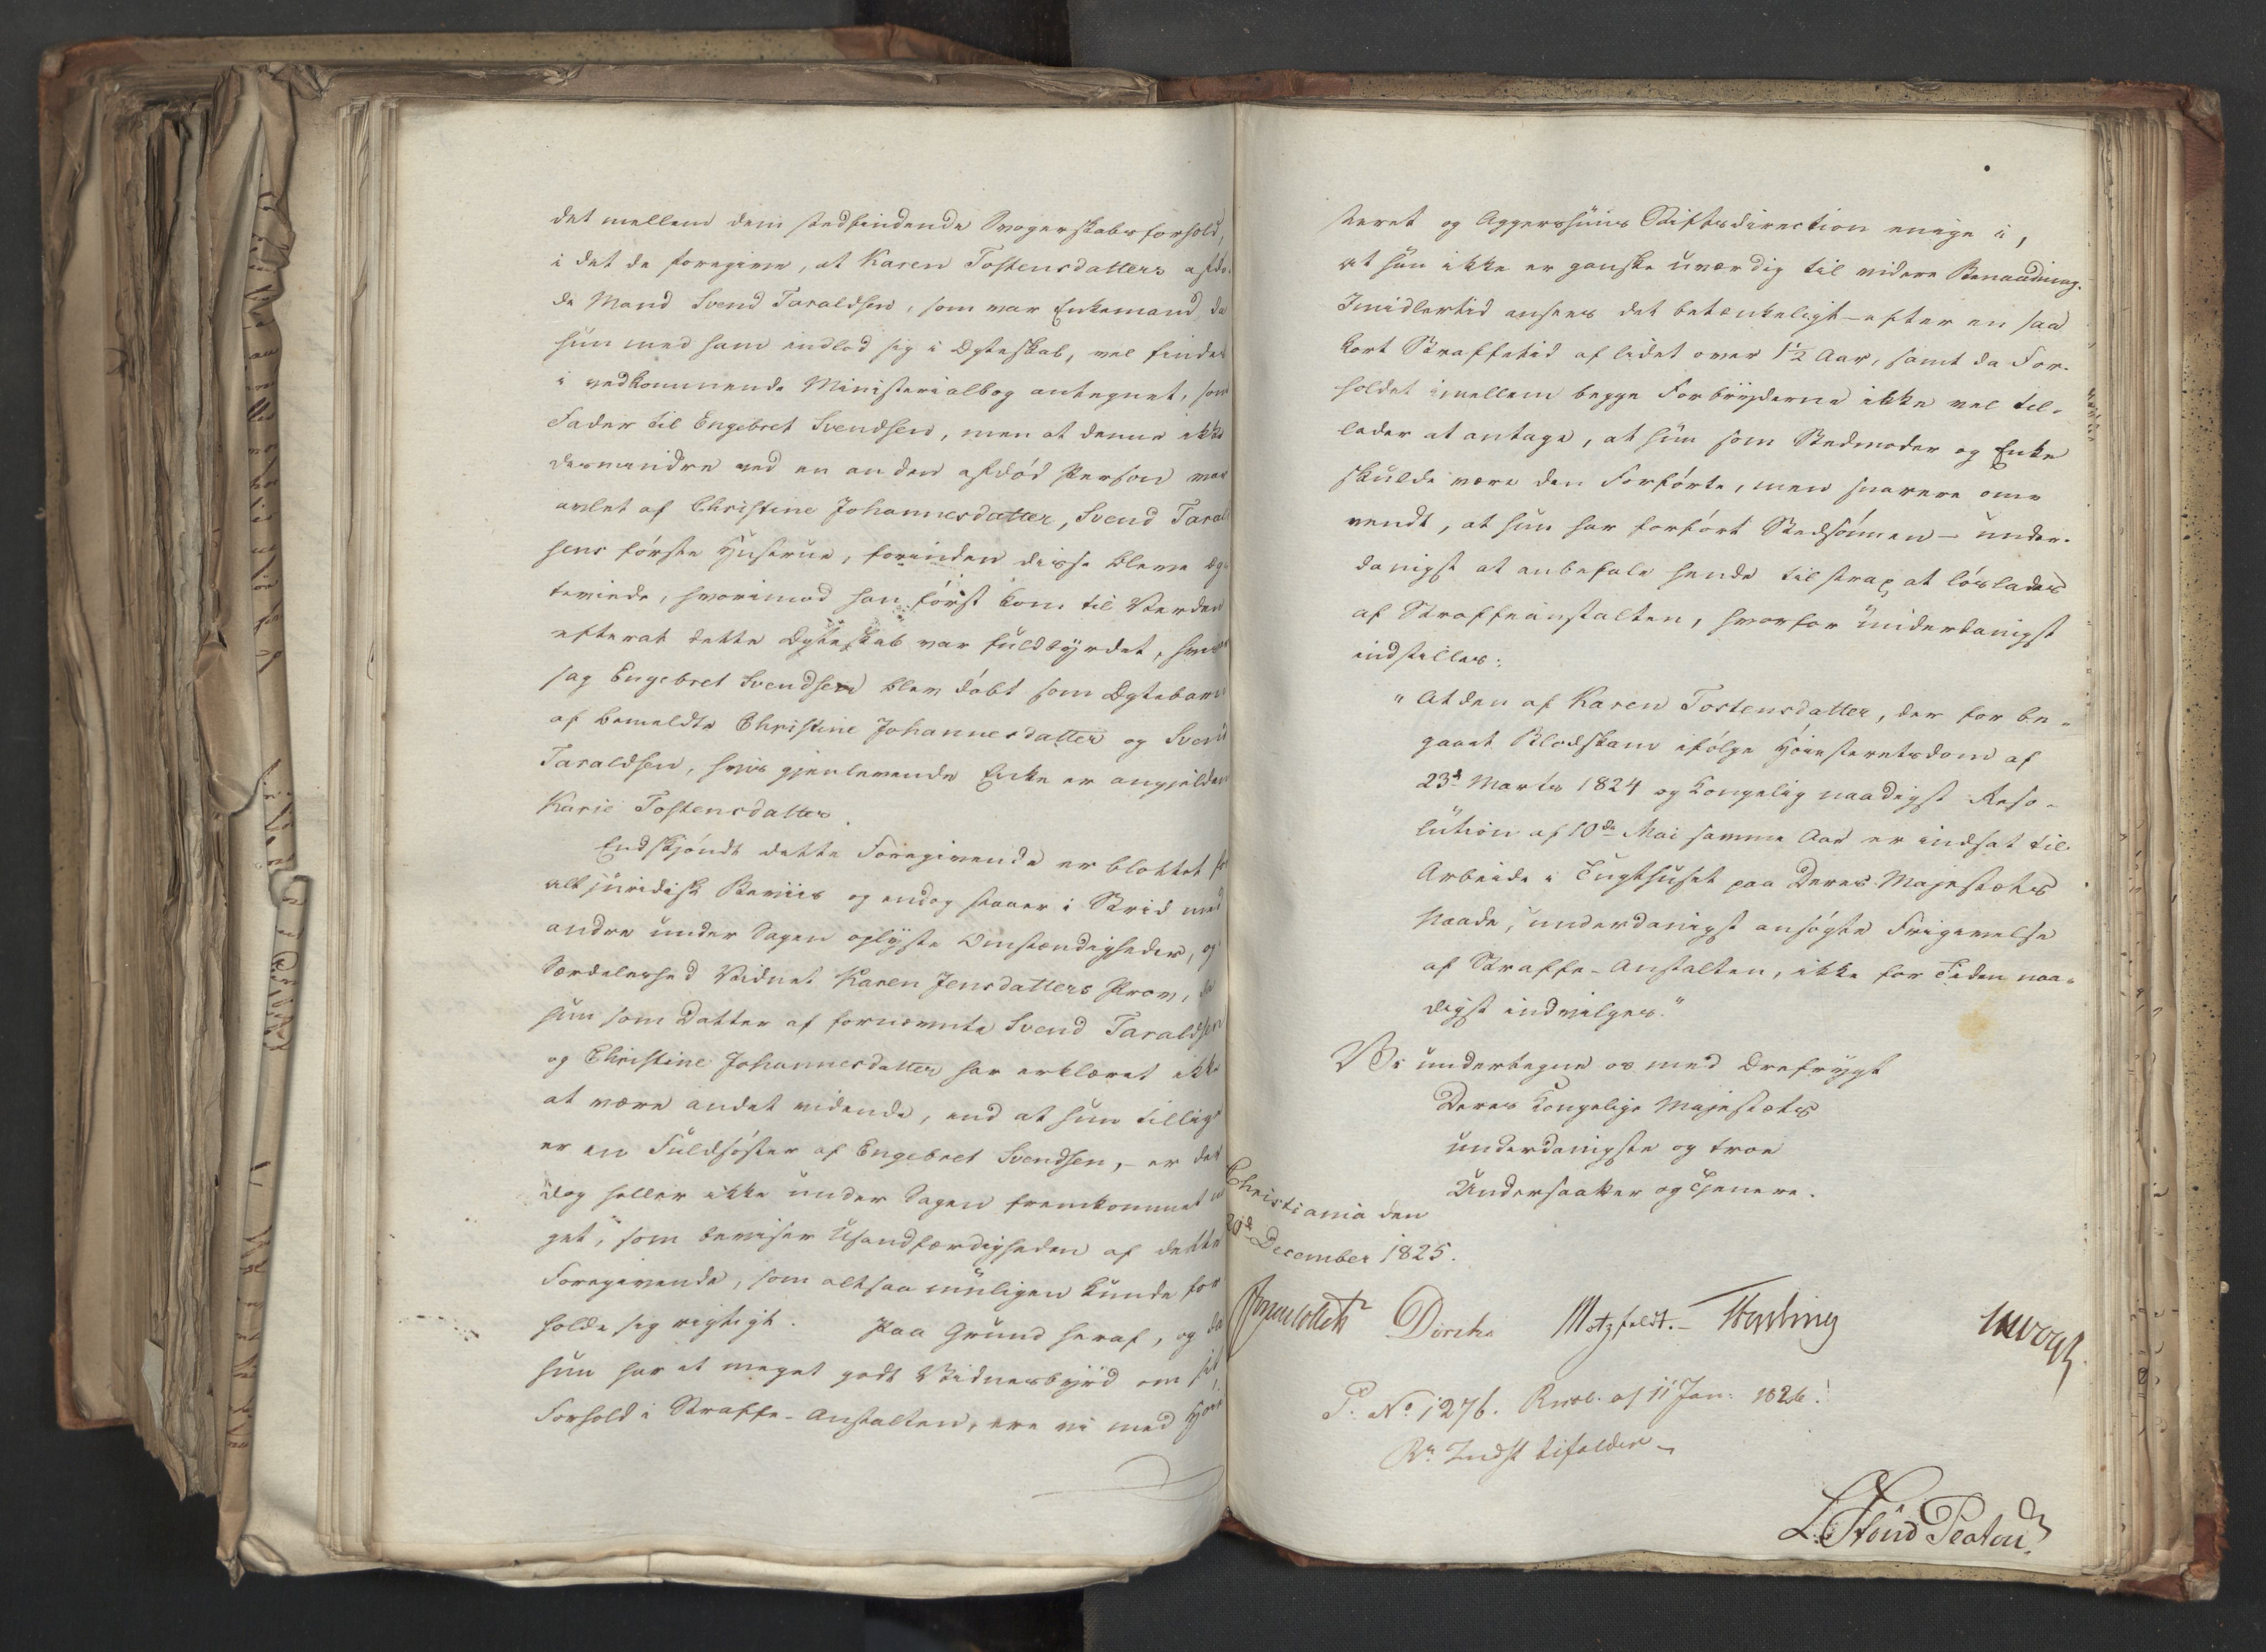 det mellem dem stedfindende Svogerskabsforhold,
i det de foregive, at Karen Tostensdatters afdø-
de Mand Svend Taraldsen, som var Enkemand, da
hun med ham indlod sig i Ægteskab, vel findes
i vedkommende Ministerialbog antegnet, som
Fader til Engebret Svendsen, men at denne ikke
desmindre ved en anden afdød Person var
avlet af Christine Johannesdatter, Svend Tarald
sens første Hustrue, forinden disse bleve æg-
teviede, hvorimod han først kom til Verden
efterat dette Ægteskab var fuldbyrdet, hves
sag Engebret Svendsen blev døbt som Ægtebarn
af bemeldte Christine Johannesdatter og Svend
Taraldsen, hvis gjenlevende Enke er angjeldende
Karie Tostensdatter.
Endskjøndt dette Foregivende er blottet for
alt juridisk Beviis og endog staaer i Strid med
andre under Sagen oplyste Omstændigheder, og
Særdeleshed Vidnet Karen Jensdatters Prov, da
hun som Datter af fornævnte Svend Taraldsen
og Christine Johannesdatter har erklæret ikke
at være andet vidende, end at hun tillige
er en Fuldsøster af Engebret Svendsen, - er det
dog heller ikke under Sagen fremkommet no
get, som beviser Usandfærdigheden af dette
Foregivende, som altsaa muligen kunde for
holde sig rigtigt. Paa Grund heraf, og da
hun har et meget godt Vidnesbyrd om sit
Forhold i Straffe-Anstalten, ere vi med Høie
steret og Aggershuus Stiftsdirection enige i,
at hun ikke er ganske uværdig til videre Benaadning.
Imidlertid ansees det betænkeligt - efter en saa
kort Straffetid af lidet over 1½ Aar, samt da For-
holdet imellem begge Forbryderne ikke vel til-
lader at antage, at hun som Stedmoder og Enke
skulde være den Forførte, men snarere om-
vendt, at hun har forført Stedsønnen - under-
danigst at anbefale hende til strax at løslades
af Straffeanstalten, hvorfor underdanigst
indstilles:
"At den af Karen Tostensdatter, der for be-
gaaet Blodskam ifølge Høiesteretsdom af
23d Marts 1824 og Kongelig naadigst Reso-
lution af 10de Mai samme Aar er indsat til
Arbeide i Tugthuset paa Deres Majestæts
Naade, underdanigst ansøgte Frigivelse
af Straffe-Anstalten, ikke for Tiden naa-
digst indvilges."
Vi undertegne os med Ærefrygt
Deres Kongelige Majestæts
underdanigste og troe
Undersaatter og Tjenere.
Christiania den
20de December 1825.
Jonas Collett Diriks Motzfeldt. - Fasting JHVogt
P. No 1276. Resol. af 11 Jan: 1826.
Rs Indst bifaldes -